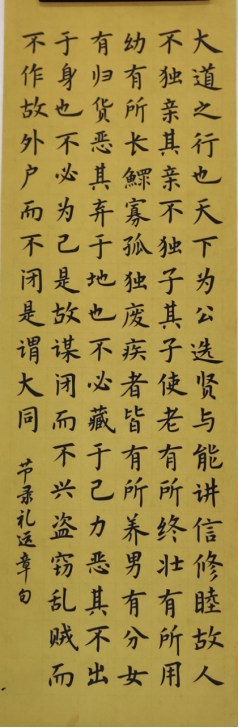 大道之行也天下为公选贤与能讲信修睦故人
不独亲其亲不独子其子使老有所终壮有所用
幼有所长鳏寡孤独废疾者皆有所养男有分女
有归货恶其弃于地也不必藏于己力恶其不出
于身也不必为己是故谋闭而不兴盗窃乱贼而
不作故外户而不闭是谓大同
节录礼运章句